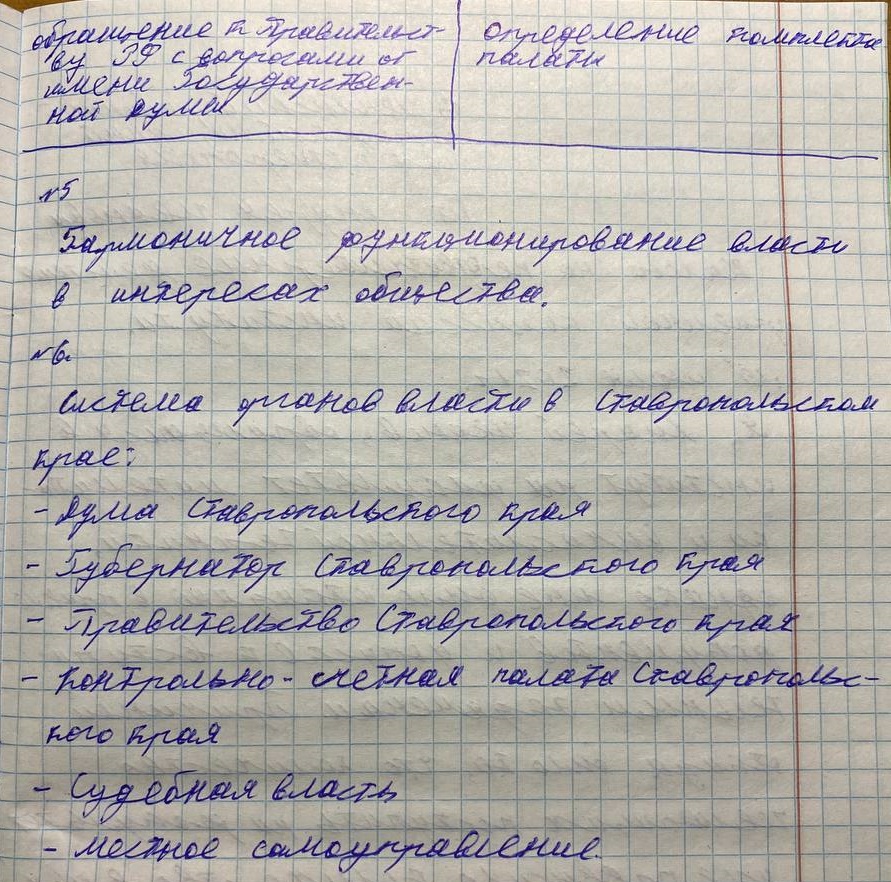 обращение к Правительст-
ву РФ с вопросами от
имени Государствен-
ной Думы
определение комплекта
палаты
№5
Гармоничное функционирование власти
в интересах общества.
№6.
Система органов власти в Ставропольском
крае:
- Дума Ставропольского края
- Губернатор Ставропольского края
- Правительство Ставропольского края
- Контрольно-счетная палата Ставрополь-
ского края
- Судебная власть
- местное самоуправление.